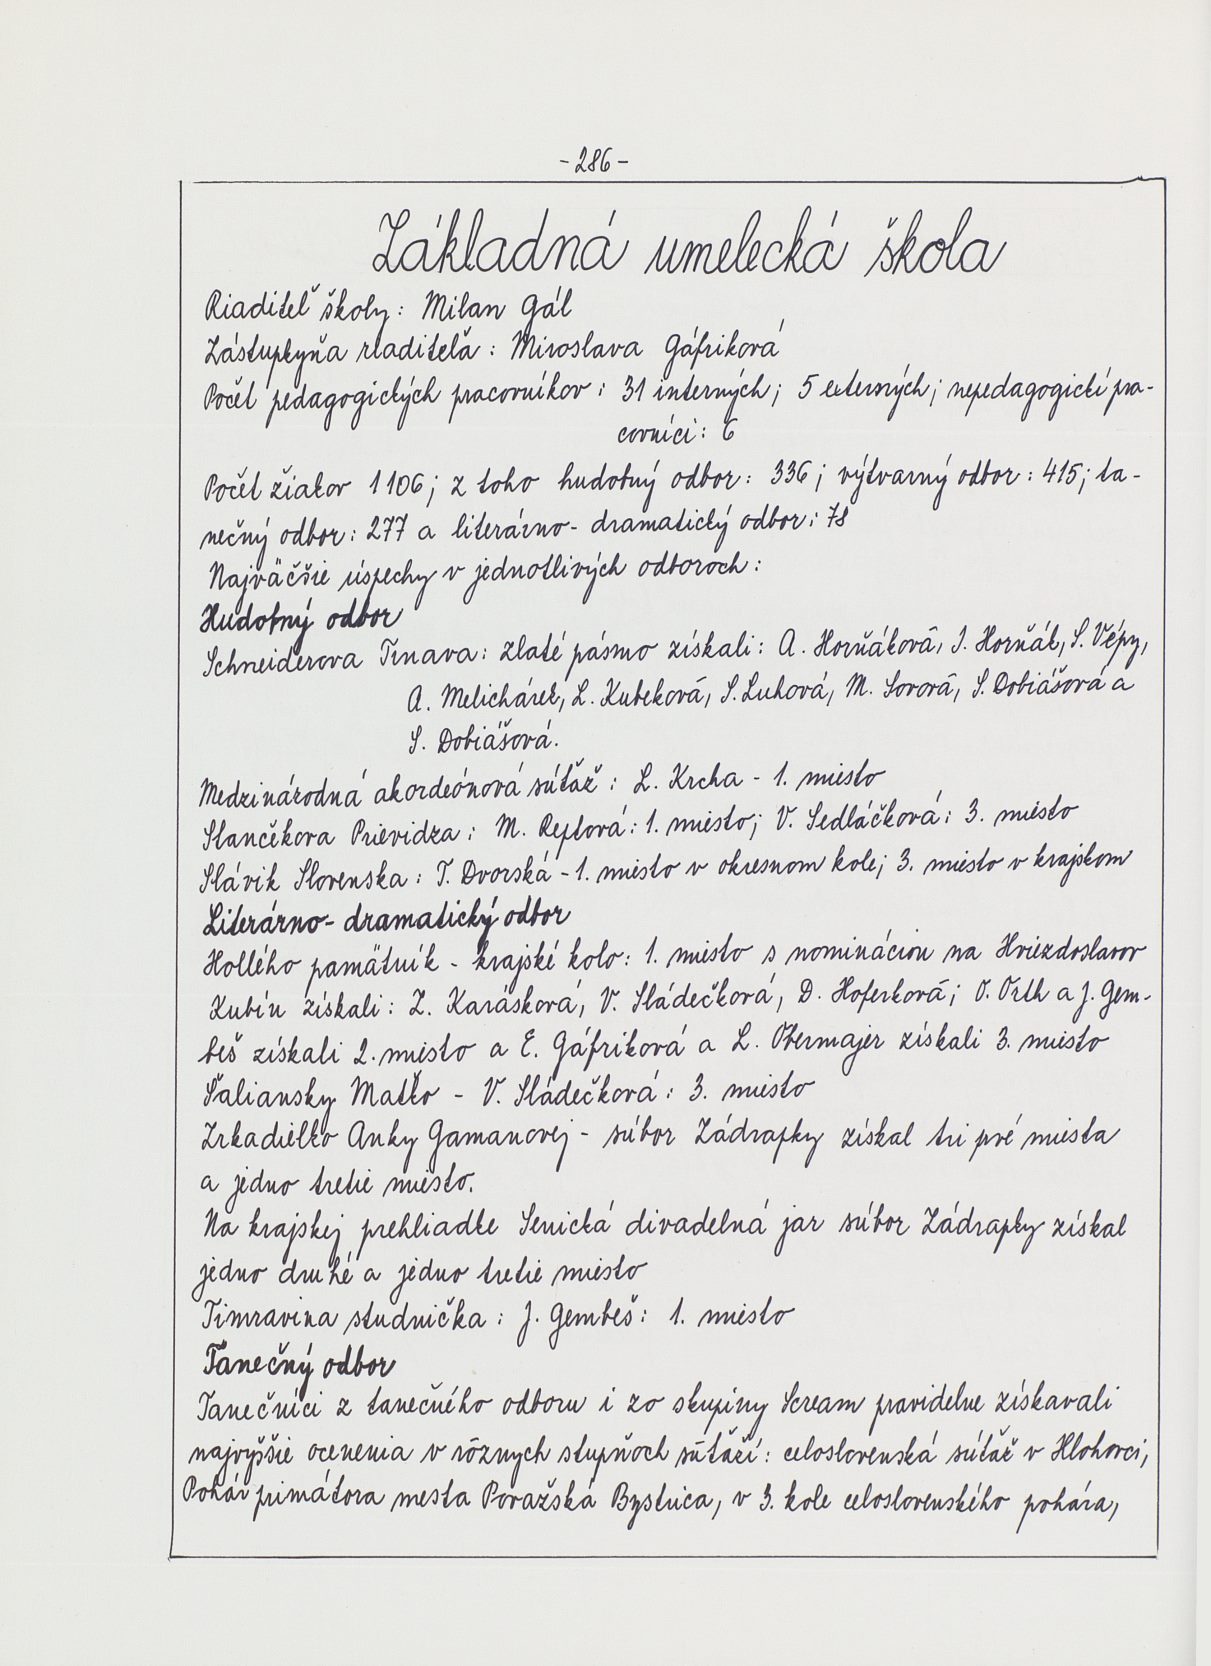 -286-
Základná umelecká škola
Riaditeľ školy: Milan Gál
Zástupkyňa riaditeľa: Miroslava Gáfriková
Počet pedagogických pracovníkov: 31 interných; 5 externých; nepedagogickí pra-
covníci: 6
Počet žiakov 1106; z toho hudobný odbor: 336; výtvarný odbor: 415; ta-
nečný odbor: 277 a literárno-dramatický odbor: 78
Najväčšie úspechy v jednotlivých odboroch:
Hudobný odbor
Schneiderova Trnava: zlaté pásmo získali: A. Horňáková, J. Horňák, S. Vépy,
A. Melichárek, L. Kubeková, S. Luhová, M. Sovorá, S. Dobiášová a
S. Dobiášová.
Medzinárodná akordeónová súťaž: L. Krcha - 1. miesto
Stančekova Prievidza: M. Reptová: 1. miesto; V. Sedláčková: 3. miesto
Slávik Slovenska: T. Dvorská - 1. miesto v okresnom kole; 3. miesto v krajskom
Literárno-dramatický odbor
Hollého pamätník - krajské kolo: 1. miesto s nomináciou na Hviezdoslavov
Kubín získali: Z. Karásková, V. Sládečková, D. Hoferková; O. Orth a J. Gem-
beš získali 2. miesto a E. Gáfriková a L. Obermajer získali 3. miesto
Šaliansky Maťko - V. Sládečková: 3. miesto
Zrkadielko Anky Gamanovej - súbor Zádrapky získal tri prvé miesta
a jedno tretie miesto.
Na krajskej prehliadke Senická divadelná jar súbor Zádrapky získal
jedno druhé a jedno tretie miesto
Timravina studnička: J. Gembeš: 1. miesto
Tanečný odbor
Tanečníci z tanečného odboru i zo skupiny Scream pravidelne získavali
najvyššie ocenenia v rôznych stupňoch súťaží: celoslovenská súťaž v Hlohovci,
Pohár primátora mesta Považská Bystrica, v 3. kole celoslovenského pohára,